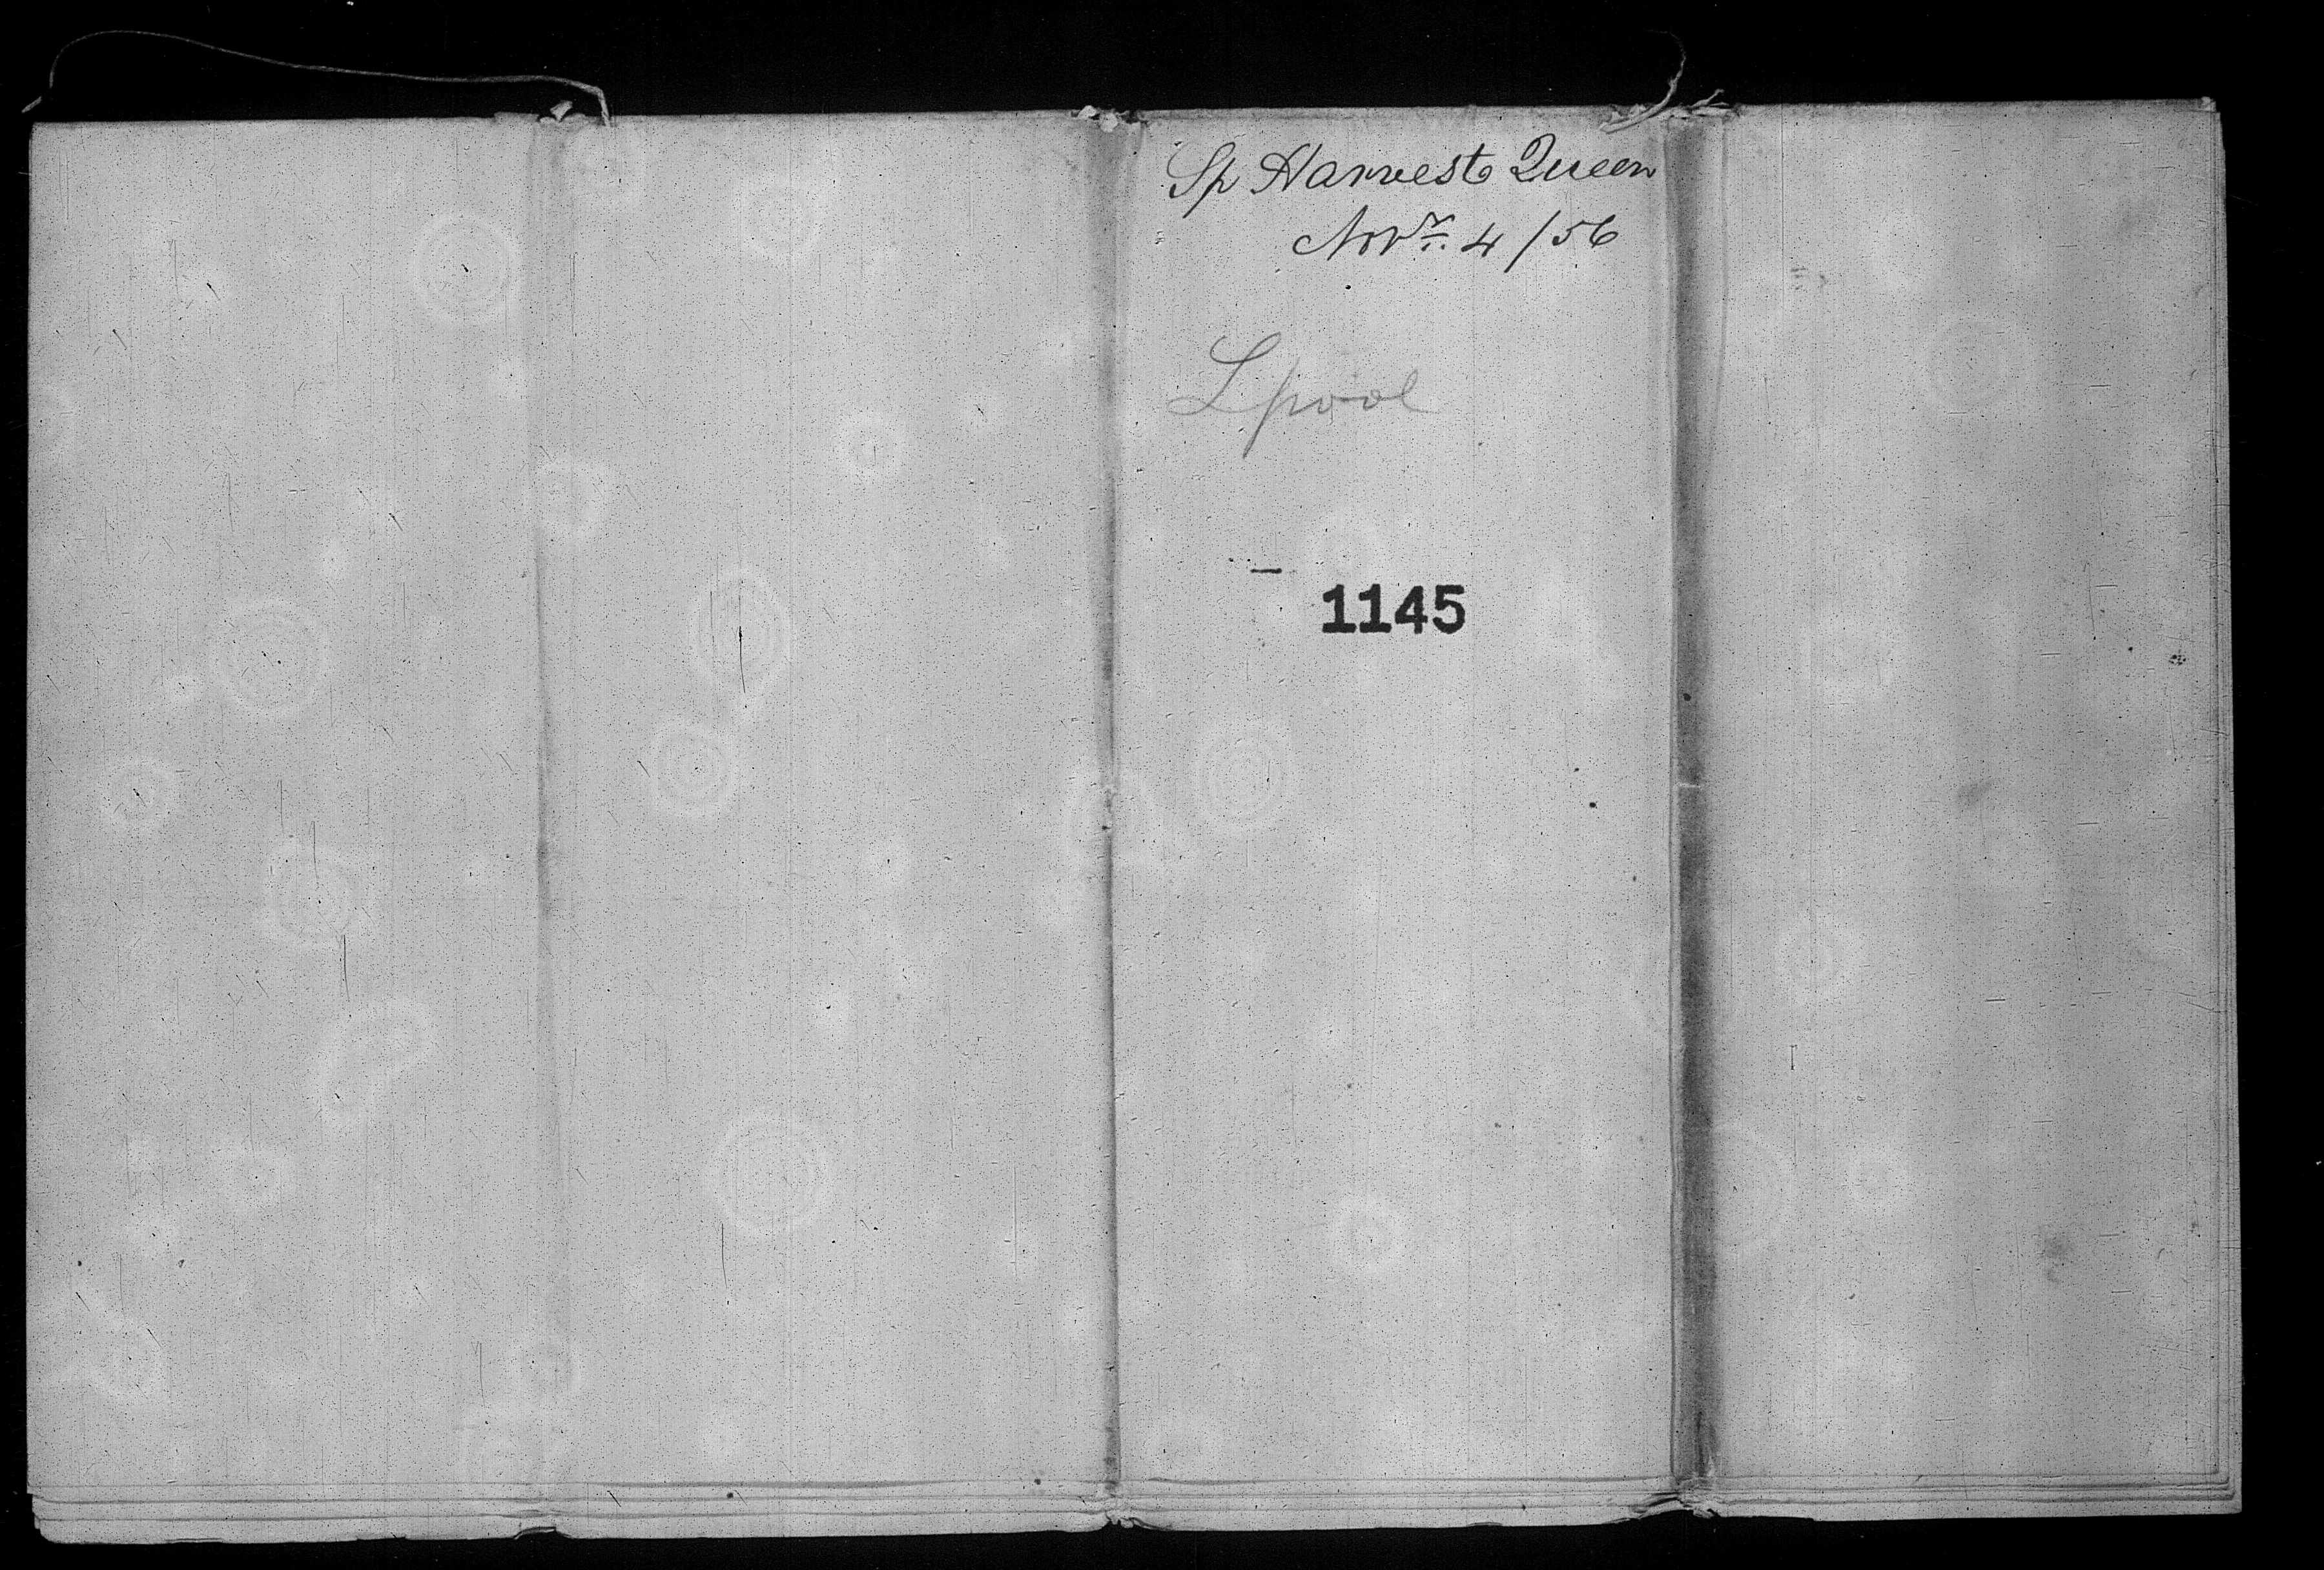 Sp Harvest Queen
Novr. 4/56
Lpool
1145